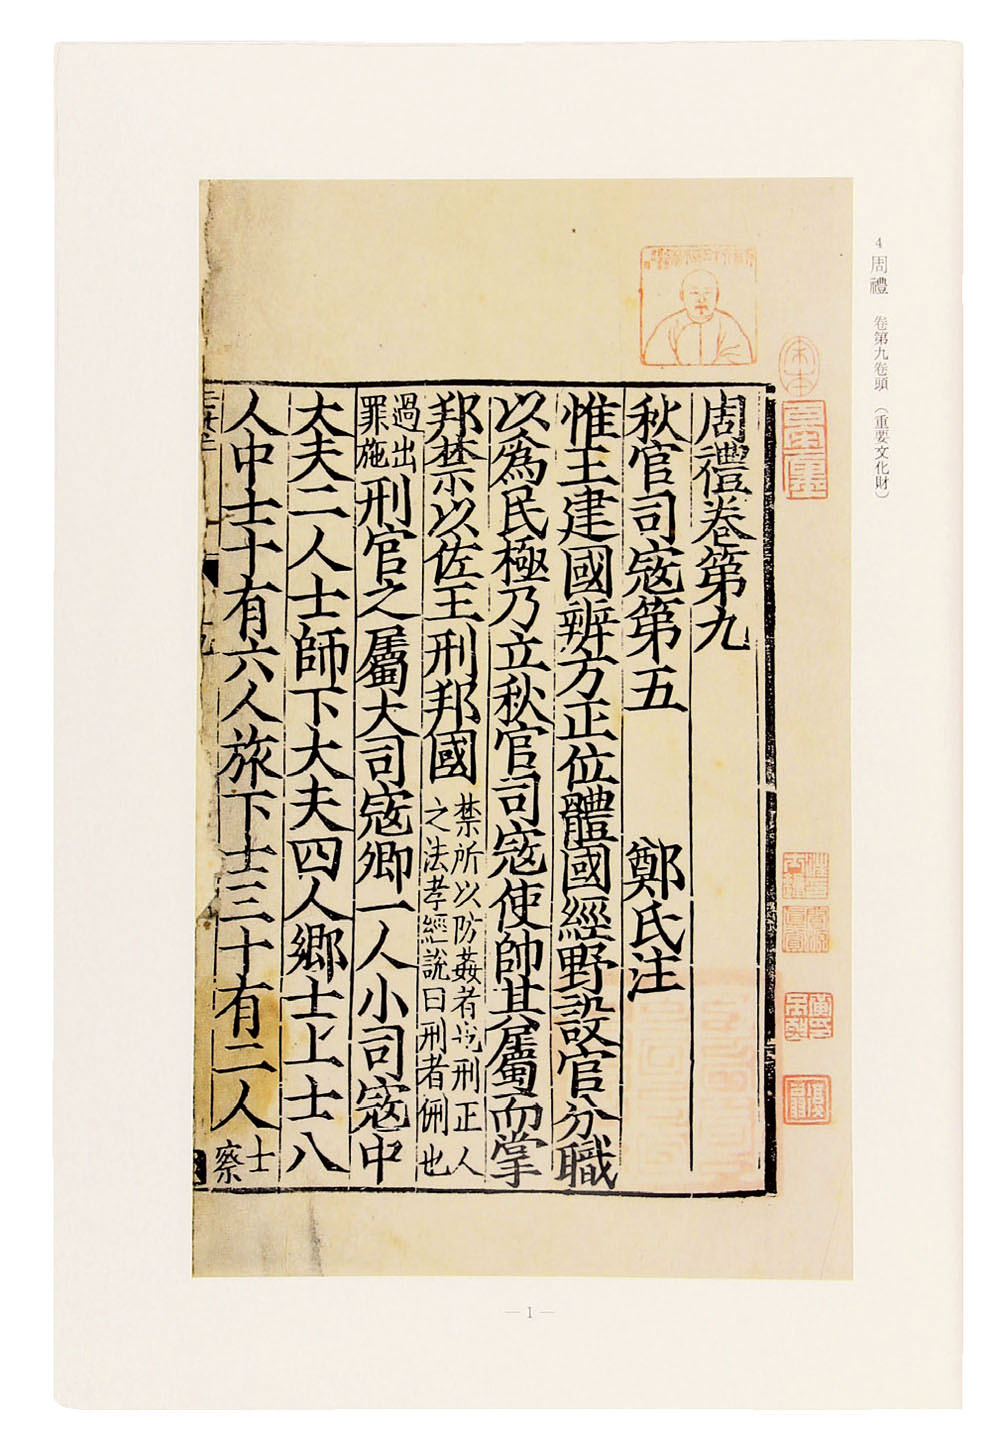 4 周禮 卷第九卷頭 (重要文化財)
周禮卷第九
秋官司寇第五 鄭氏注
惟王建國辨方正位體國經野設官分職
以爲民極乃立秋官司寇使帥其屬而掌
邦禁以佐王刑邦國
禁所以防姦者也刑正人
之法孝經說曰刑者侀也
過出
罪施
刑官之屬大司寇卿一人小司寇中
大夫二人士師下大夫四人鄉士上士八
人中士十有六人旅下士三十有二人
士
察
— 1 —